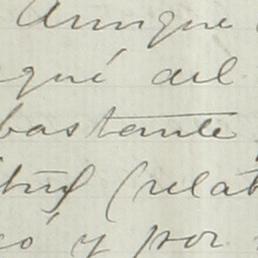 Aunque
qué del
bastante
(relat
y por